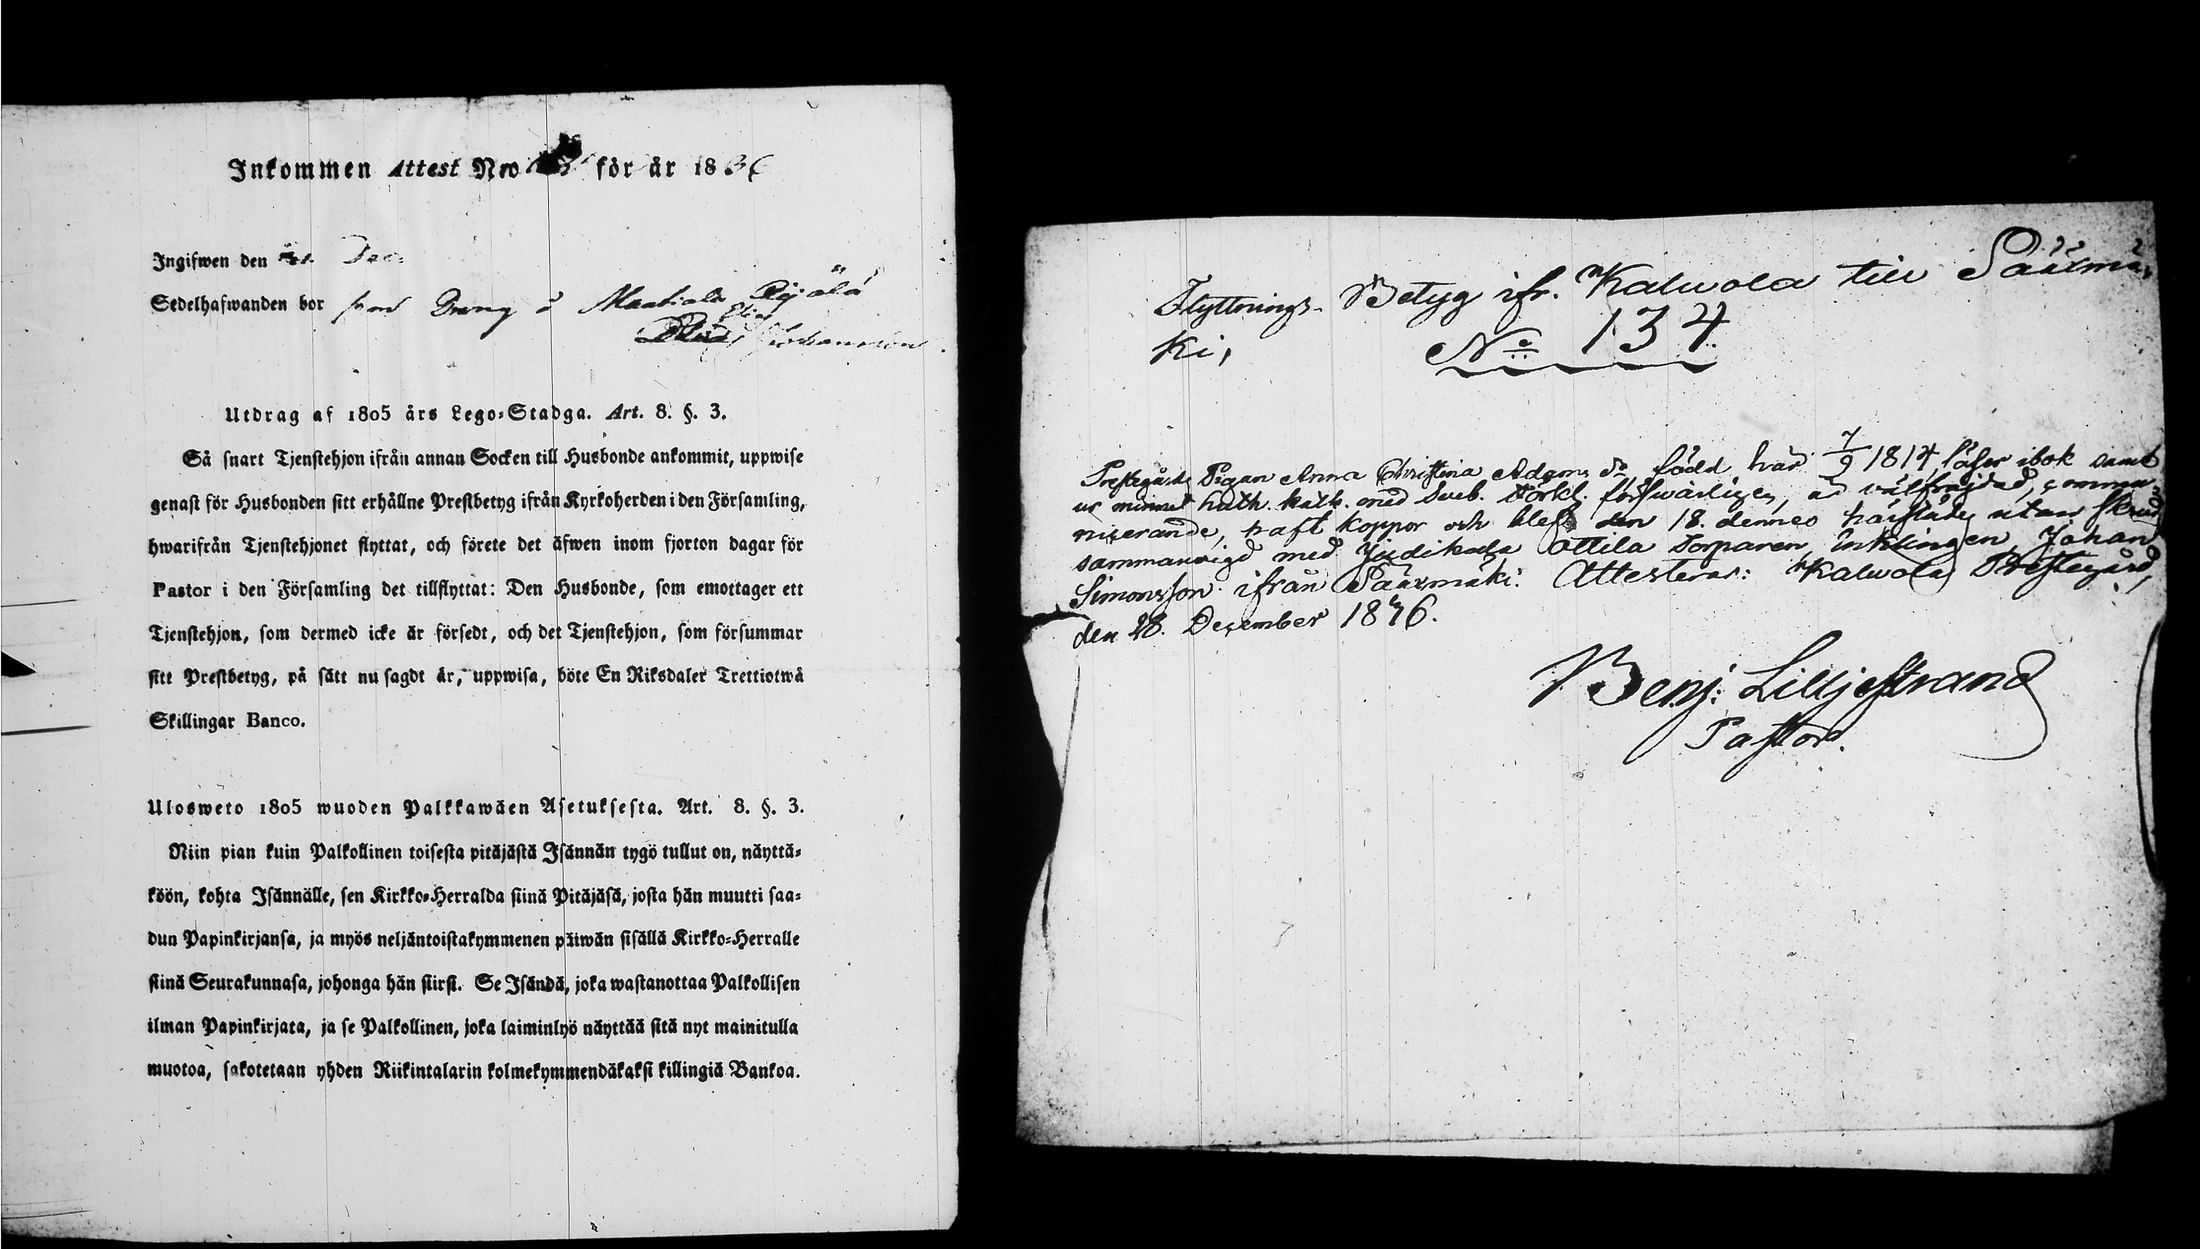 Inkommen Attest Nro för år 1836
Ingifwen den Dec.
Sedelhafwanden bor som Dräng å
Johansson
Utdrag af 1805 års Lego-Stadga. Art. 8. §. 3.
Så snart Tjenstehjon ifrån annan Socken till Husbonde ankommit, uppwise
genast för Husbonden sitt erhållne Prestbetyg ifrån Kyrkoherden i den Församling,
hwarifrån Tjenstehjonet flyttat, och förete det äfwen inom fjorton dagar för
Pastor i den Församling det tillflyttat: Den Husbonde, som emottager ett
Tjenstehjon, som dermed icke är försedt, och det Tjenstehjon, som försummar
sitt Prestbetyg, på sätt nu sagdt är, uppwisa, böte En Riksdaler Trettiotwå
Skillingar Banco.
Ulosweto 1805 wuoden Palkkawäen Asetuksesta. Art. 8. §. 3.
Niin pian kuin Palkollinen toisesta pitäjästä Isännän tygö tullut on, näyttä-
köön, kohta Isännälle, sen Kirkko-Herralda siinä Pitäjäsä, josta hän muutti saa-
dun Papinkirjansa, ja myös neljäntoistakymmenen päiwän sisällä Kirkko-Herralle
siinä Seurakunnasa, johonga hän siirsi. Se Isändä, joka wastanottaa Palkollisen
ilman Papinkirjata, ja se Palkollinen, joka laiminlyö näyttää sitä nyt mainitulla
muotoa, sakotetaan yhden Riikintalarin kolmekymmendäkaksi killingiä Bankoa.
Flyttnings-Betyg ifr. Kalwola till Sääxmä-
ki,
No 134
Prestegårds Pigan Anna Christina Adams dr född här 7/9 1814, läser i bok samt
ur minnet luth. kath. med Sveb. förkl. förswarligen, är välfrejdad, commu-
nicerande, haft koppor och blef den 18. dennes härstädes utan skrud
sammanvigd med Attila Torparen, Enklingen Johan
Simonsson ifrån Sääxmäki. Attesterar: Kalwola Prestegård,
den 28. December 1846.
Benj. Lilljestrand
Pastor.